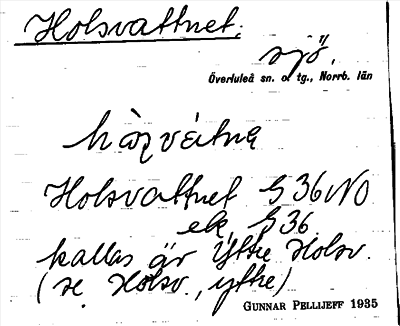 Holsvattnet,
sjö,
Överluleå sn. o. tg., Norrb. län
hòlvátnə
Holsvattnet S 36 NO
ek. S 36
kallas är Yttre Holsv.
(se Holsv., yttre)
GUNNAR PELLIJEFF 1935